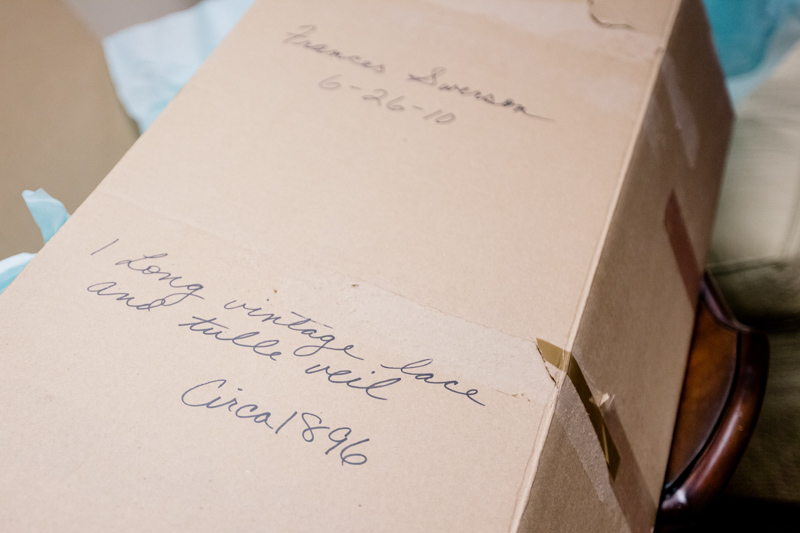 Frances Swerson
6-26-10
1 Long vintage lace
and tulle veil
Circa 1896